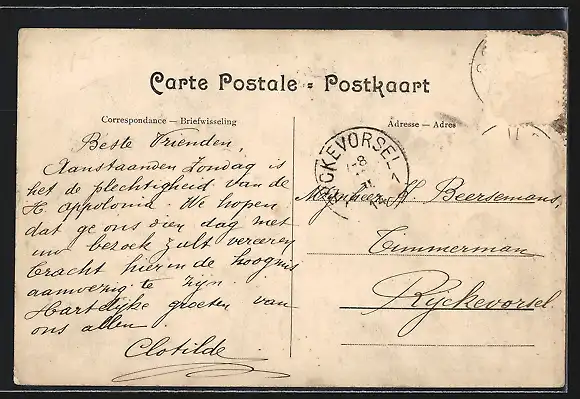 Carte Postale - Postkaart
Correspondance — Briefwisseling
Adresse — Adres
Beste Vrienden,
Aanstaanden Zondag is
het de plechtigheid van de
H. Appolonia. We hopen
dat ge ons dien dag met
uw bezoek zult vereeren
tracht hier in de hoogmis
aanwezig te zijn.
Hartelijke groeten van
ons allen.
Clotilde
RYCKEVORSEL
Mijnheer H. Beersemans,
Timmerman
Ryckevorsel